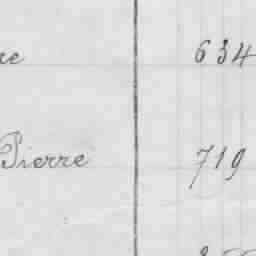 634
Pierre 719